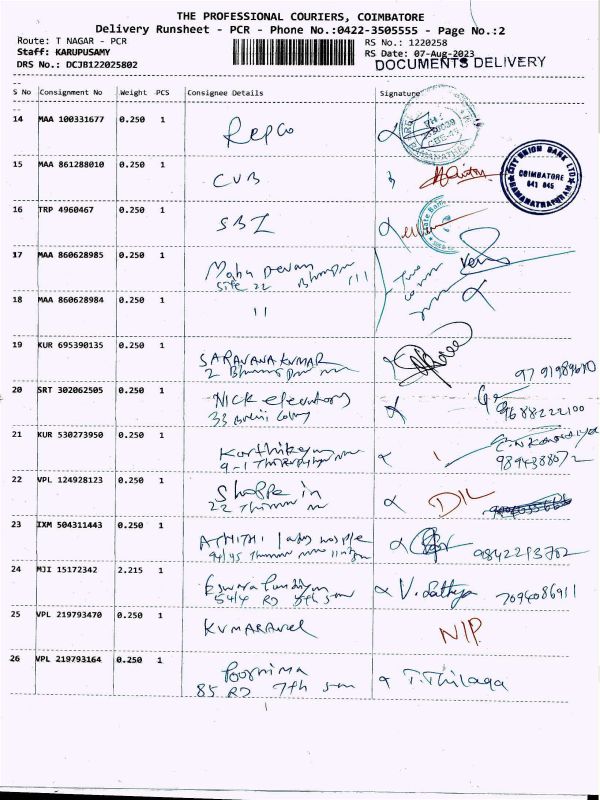 THE PROFESSIONAL COURIERS, COIMBATORE
Delivery Runsheet - PCR - Phone No.:0422-3505555 - Page No.:2
Route: T NAGAR - PCR
RS No.: 1220258
Staff: KARUPUSAMY
RS Date: 07-Aug-2023
DRS No.: DCJB122025802
DOCUMENTS DELIVERY
S No Consignment No Weight PCS Consignee Details Signature
14 MAA 100331677 0.250 1 Repco
15 MAA 861288010 0.250 1 CUB
CITY UNION BANK LTD
COIMBATORE
641 045
RAMANATHAPURAM
16 TRP 4960467 0.250 1 SBI
17 MAA 860628985 0.250 1
site 22
18 MAA 860628984 0.250 1 11
19 KUR 695390135 0.250 1 SARAVANA KUMAR
2
20 SRT 302062505 0.250 1 NICK elevators
33 9688222100
21 KUR 530273950 0.250 1 Karthikeyan
9-1 9894388072
22 VPL 124928123 0.250 1 Shoppe in DIL
22
23 IXM 504311443 0.250 1 ATHITHI
9842213702
24 MJI 15172342 2.215 1 Eswara Pandiyan V. Sathya 7094086911
54/4 RD
25 VPL 219793470 0.250 1 KUMARAVEL N/P
26 VPL 219793164 0.250 1 Poornima T.Thilaga
85 RD 7th